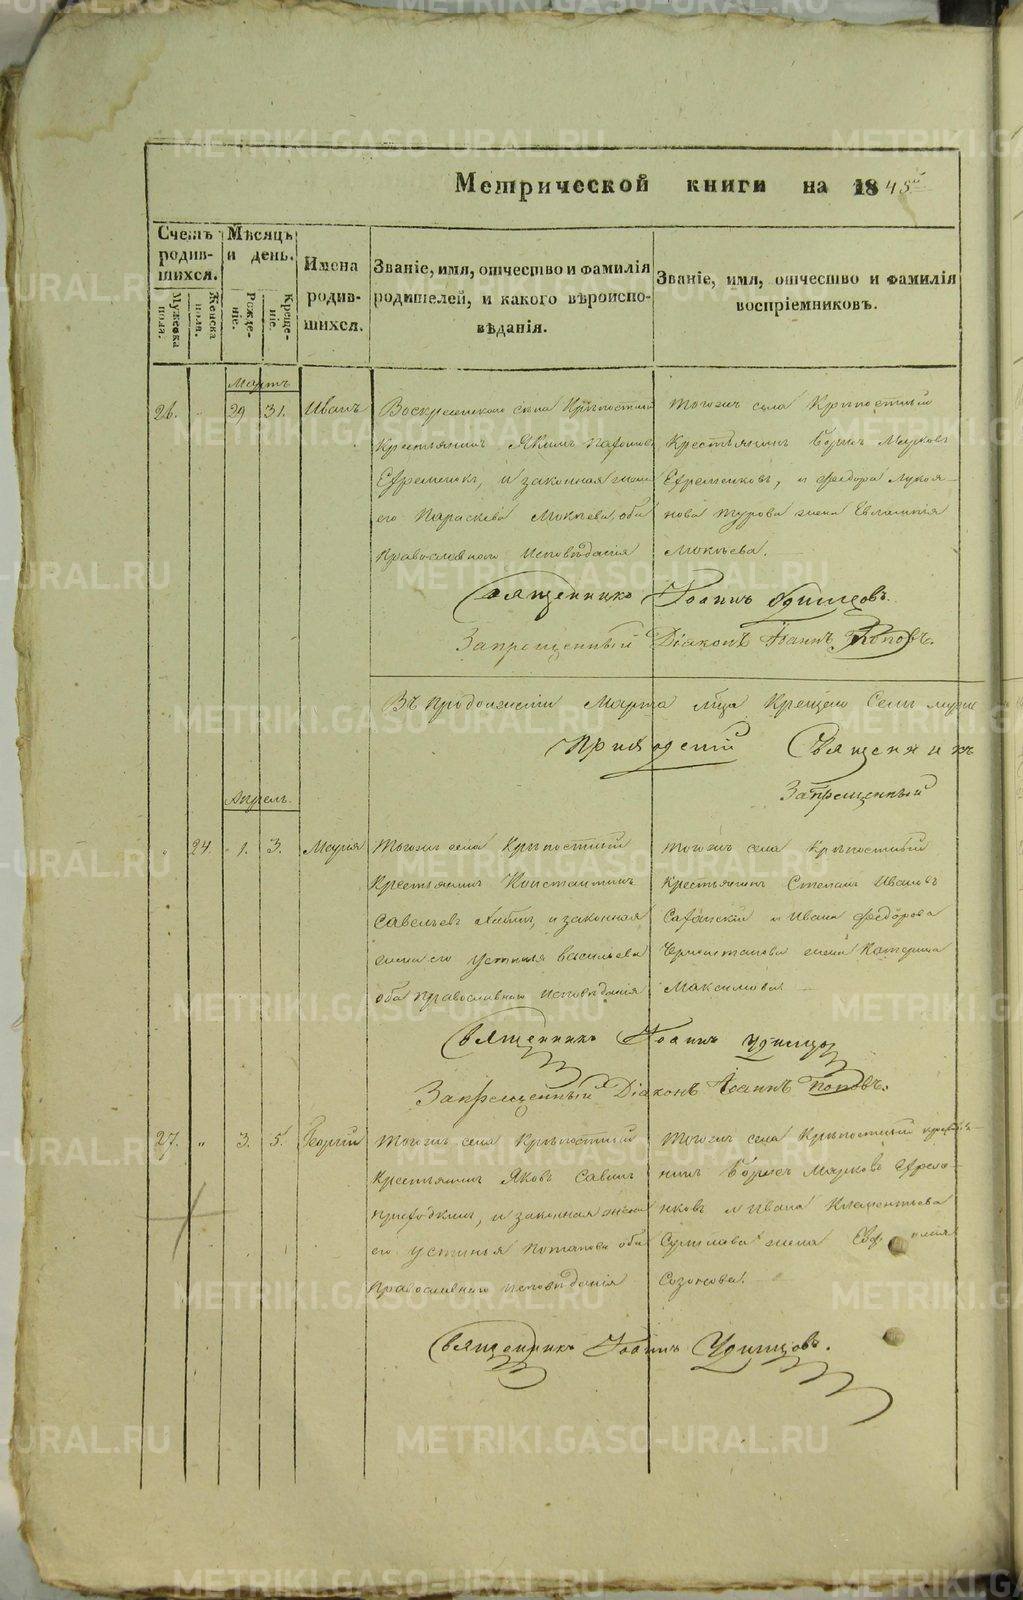 Метрической книги на 1845й
Счетъ родившихся.
Мужеска пола.
Женска пола.
Мѣсяцъ и день.
Рожденіе.
Крещеніе.
Имена родившихся.
Званіе, имя, отчество и фамилія родителей, и какого вѣроисповѣданія.
Званіе, имя, отчество и фамилія воспріемниковъ.
Мартъ
26. 29 31. Иванъ
Воскресенскаго села Крѣпостный
Крестьянинъ Якимъ
и законная жена
его Параскева Мокѣева, оба
Православнаго Исповѣданія
Тогожъ села Крѣпостный
Крестьянинъ Борисъ Марковъ
Ефременковъ, и Федора Лукоя-
нова Турова жена Евлампія
Мокѣева.
Священникъ Іоаннъ Удинцовъ.
Запрещенный Діаконъ Іоаннъ Поповъ.
Въ продолженіи Марта Крещено Семь
Священникъ
Запрещенный
Апрель.
24. 1. 3. Марія
Тогожъ села Крѣпостный
Крестьянинъ Константинъ
Савельевъ и законная
жена его Устинья Васильева
оба Православнаго Исповѣданія
Тогожъ села Крѣпостный
Крестьянинъ Степанъ Ивановъ
и Ивана Федорова
жена Катерина
Максимова.
Священникъ Іоаннъ Удинцовъ
Запрещенный Діаконъ Іоаннъ Поповъ.
27. „ 3. 5. Георгій
Тогожъ села Крѣпостный
Крестьянинъ Яковъ Савинъ
и законная жена
его Устинья Потапова оба
Православнаго исповѣданія
Тогожъ села Крѣпостный крестья-
нинъ Борисъ Марковъ Ефреме-
нковъ и Ивана Клементьева
жена
Созонова.
Священникъ Іоаннъ Удинцовъ.
METRIKI.GASO-URAL.RU